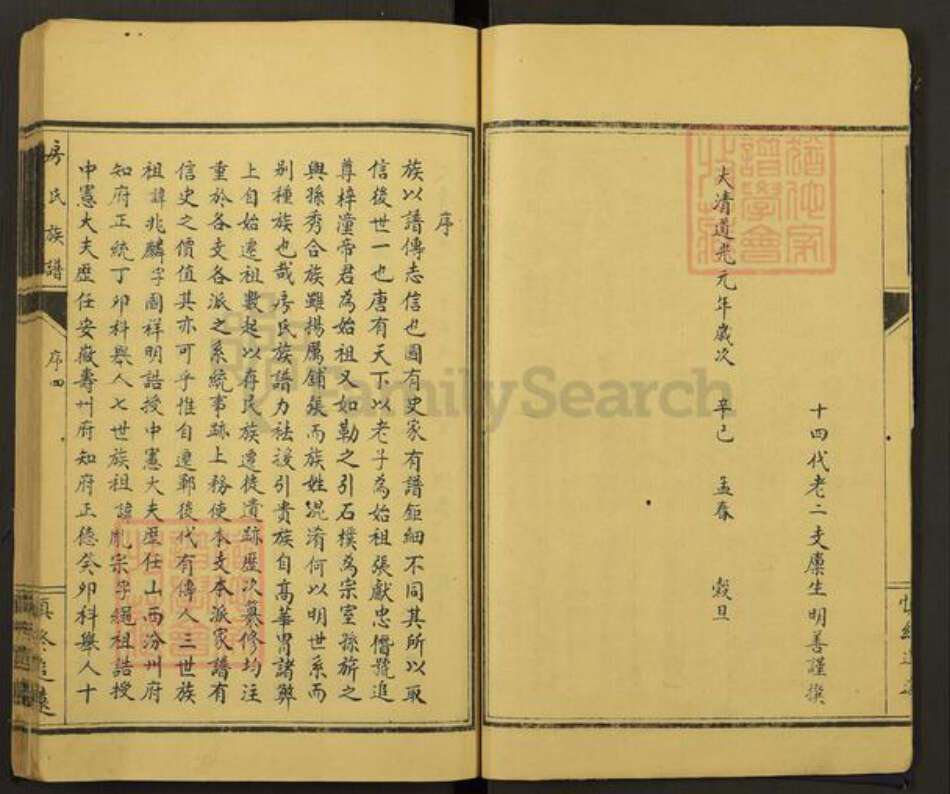 十四代老二支廩生明善謹撰
大清道光元年歲次 辛巳 孟春 穀旦
序
族以譜傳志信也國有史家有譜鉅細不同其所以取
信後世一也唐有天下以老子為始祖張獻忠僭號追
尊梓潼帝君為始祖又如勒之引石樸為宗室孫旂之
與孫秀合族雖揚厲鋪張而族姓混淆何以明世系而
別種族也哉房氏族譜力祛援引貴族自高華冑諸弊
上自始遷祖數起以存民族遷徙遺跡歷次纂修均注
重於各支各派之系統事跡上務使本支本派家譜有
信史之價值其亦可乎惟自遷鄆後代有傳人三世族
祖諱兆麟字國祥明誥授中憲大夫歷任山西汾州府
知府正統丁卯科舉人七世族祖諱胤宗字繩祖誥授
中憲大夫歷任安徽壽州府知府正德癸卯科舉人十
房氏族譜
序四
慎終追遠
FamilySearch